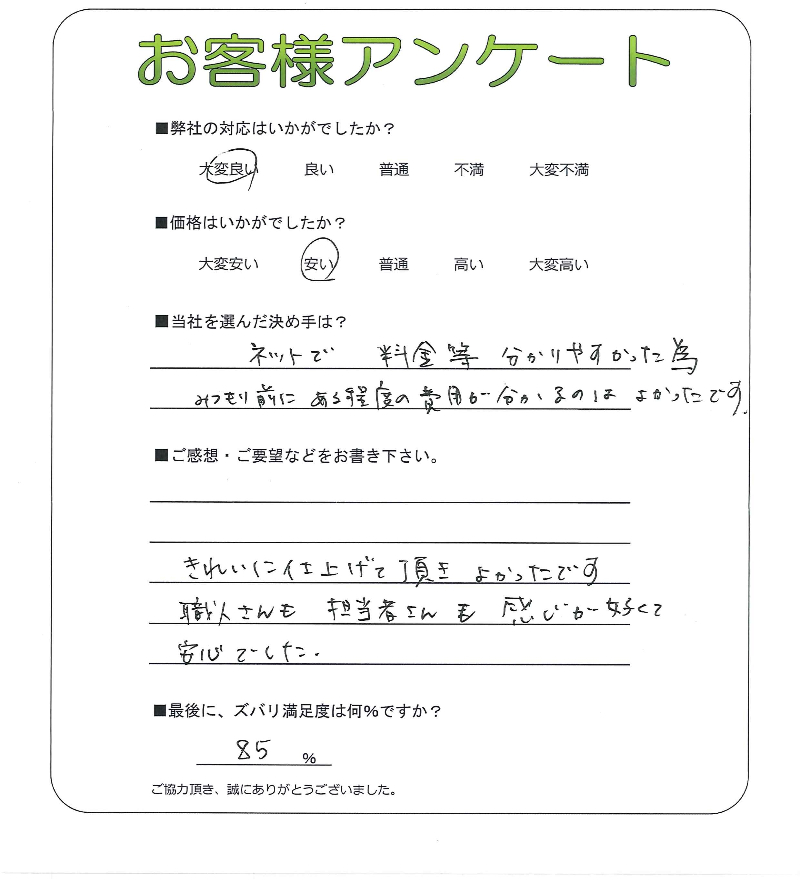 お客様アンケート
■弊社の対応はいかがでしたか？
大変良い 良い 普通 不満 大変不満
■価格はいかがでしたか？
大変安い 安い 普通 高い 大変高い
■当社を選んだ決め手は？
ネットで 料金等 分かりやすかった為
みつもり前に ある程度の費用が分かるのは よかったです.
■ご感想・ご要望などをお書き下さい。
きれいに仕上げて頂き よかったです
職人さんも 担当者さんも 感じが好くて
安心でした.
■最後に、ズバリ満足度は何％ですか？
85 %
ご協力頂き、誠にありがとうございました。